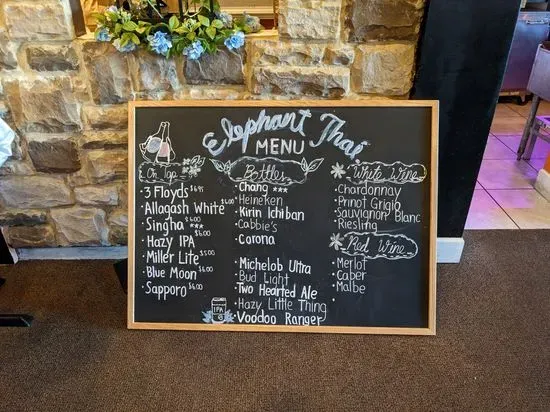 Elephant Thai
MENU
On Tap
3 Floyds $6.95
Allagash White $6.00
Singha *** $6.00
Hazy IPA $6.00
Miller Lite $5.00
Blue Moon $6.00
Sapporo $6.00
Bottles
Chang ***
Heineken
Kirin Ichiban
Cabbie's
Corona
Michelob Ultra
Bud Light
Two Hearted Ale
Hazy Little Thing
Voodoo Ranger
IPA
White Wine
Chardonnay
Prinot Grigio
Sauvignon Blanc
Riesling
Red Wine
Merlot
Caber
Malbe